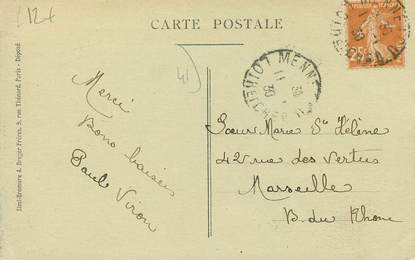 12+
CARTE POSTALE
41
Merci
Bons baisers
Paule Viron
Soeur Marie Ste Hélène
42 rue des Vertus
Marseille
B. du Rhone
Simi-Bromure A. Breger Frères, 9, rue Thénard, Paris - Déposé
25c